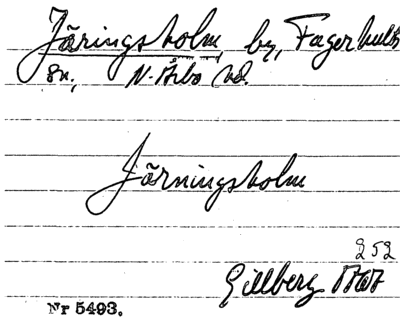 Järingsholm, by, Fagerhults
sn, N. Åsbo hd.
Järningsholm
252
Gillberg
Nr 5493.